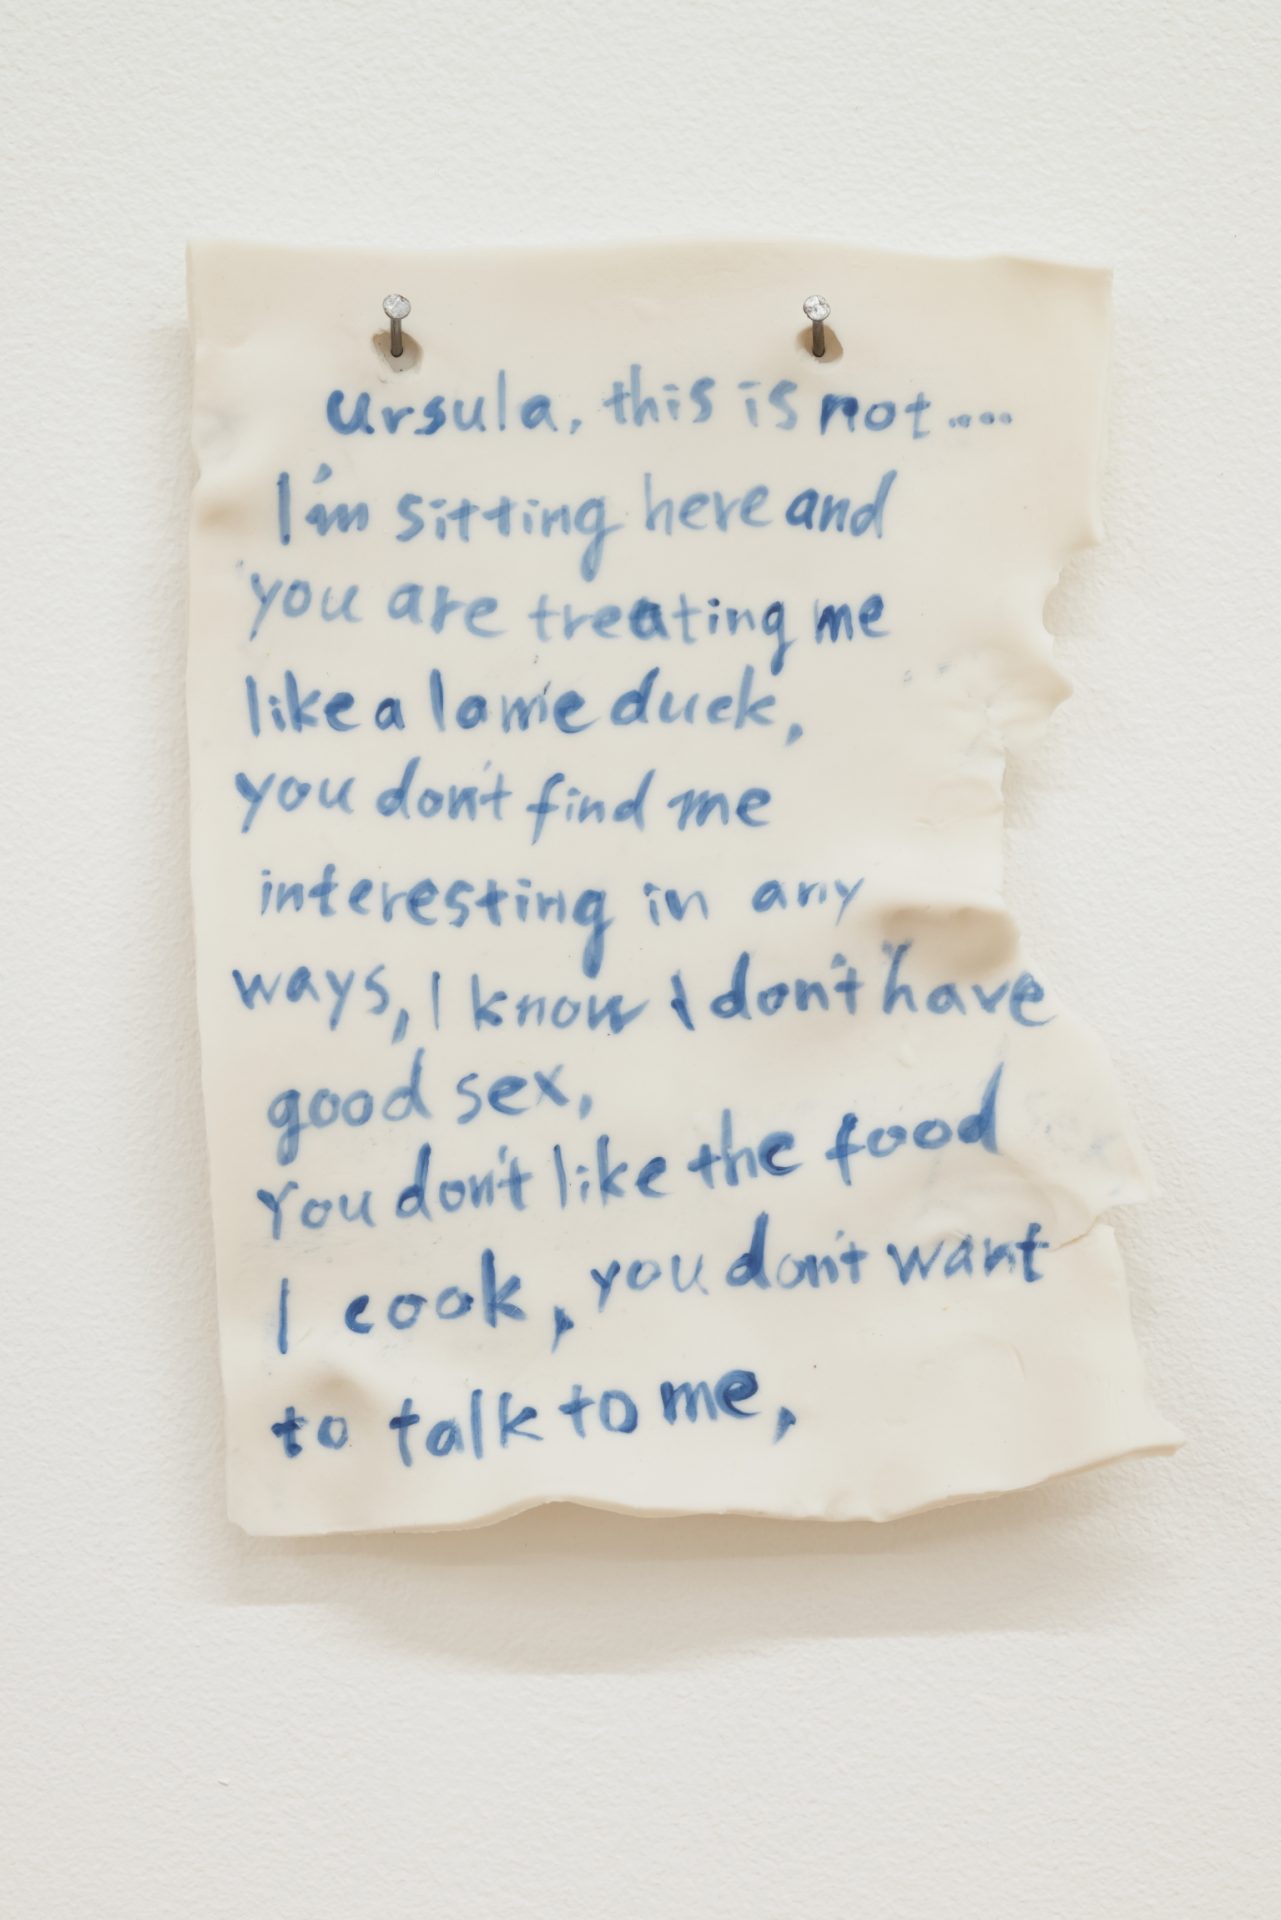 Ursula, this is not....
I'm sitting here and
you are treating me
like a lame duck,
you don't find me
interesting in any
ways, I know I don't have
good sex,
You don't like the food
I cook, you don't want
to talk to me,